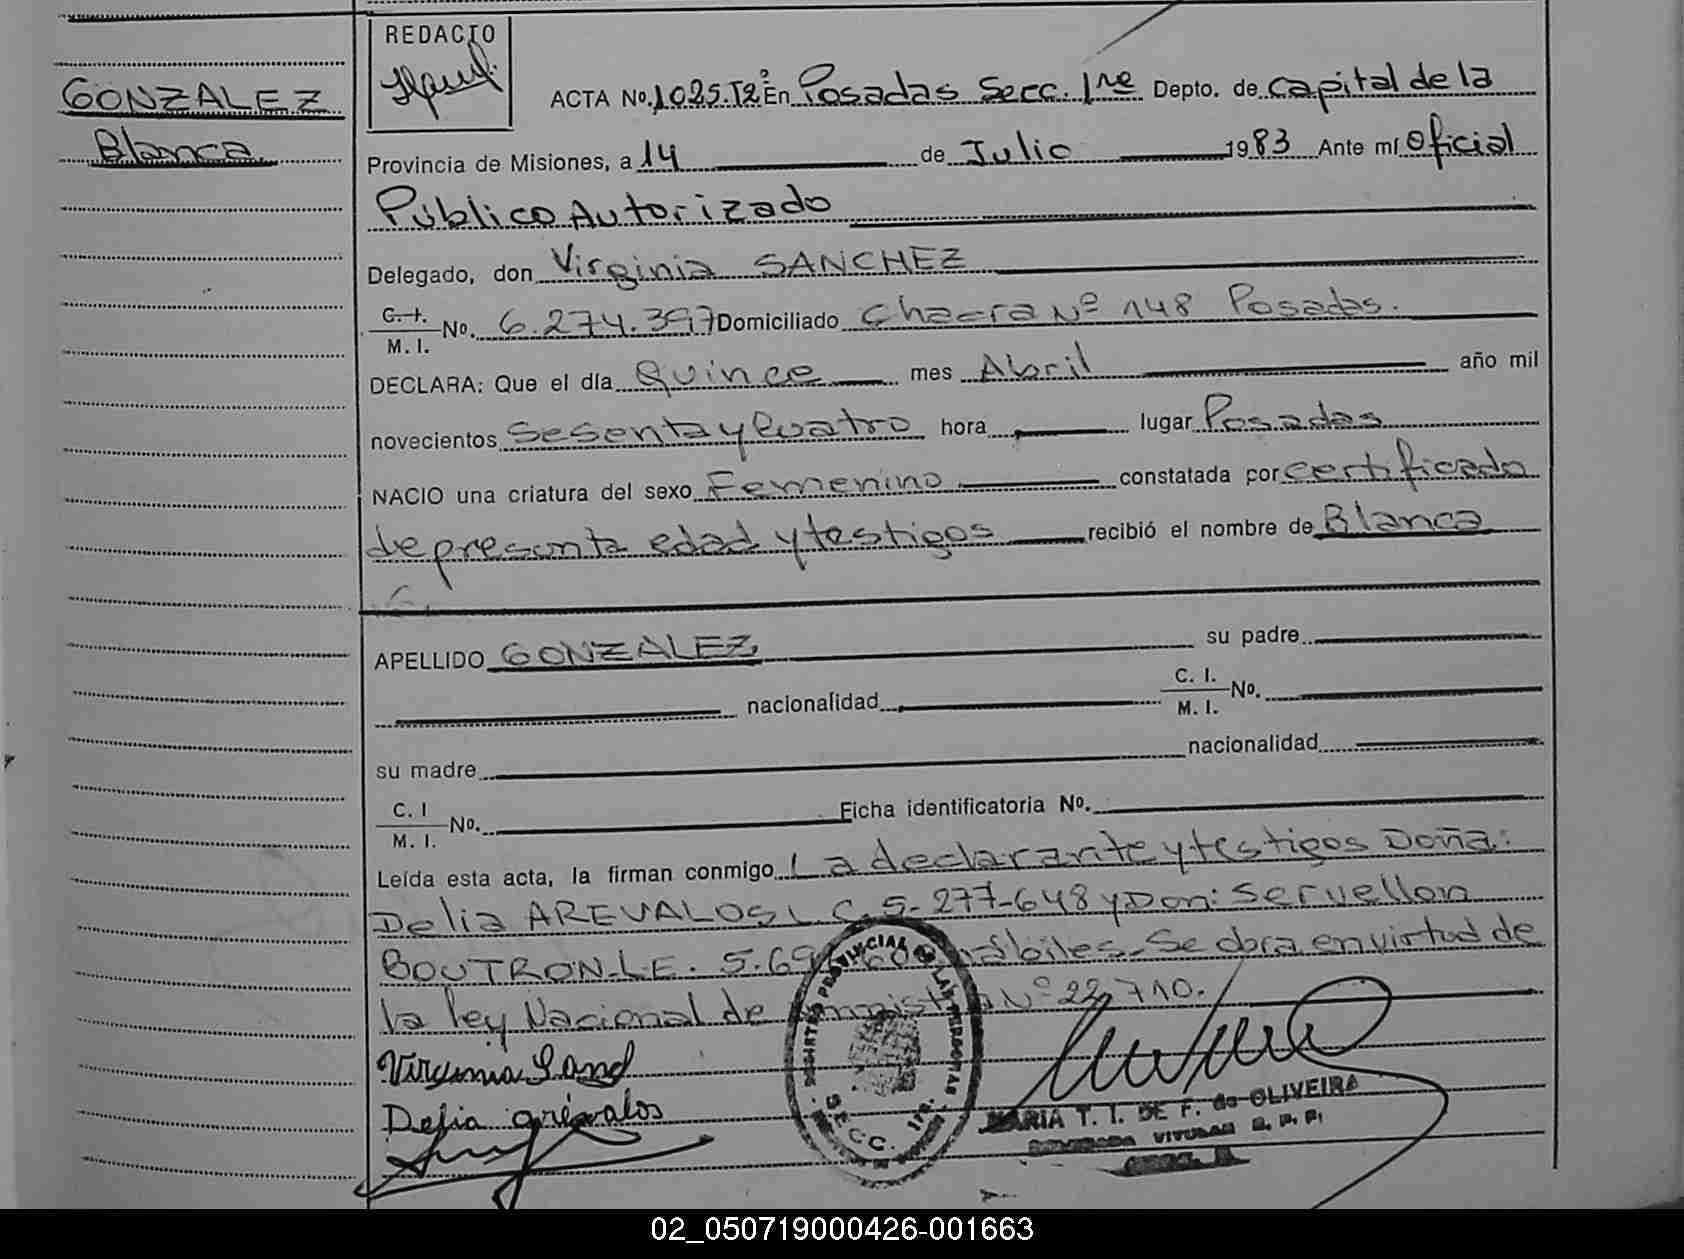 REDACTO
GONZALEZ
Blanca
ACTA No. 1025.T2º En Posadas Secc. 1ra Depto. de Capital de la
Provincia de Misiones, a 14 de Julio 1983 Ante mí Oficial
Público Autorizado
Delegado, don Virginia SANCHEZ
C. I. M. I. No. 6.274.397 Domiciliado Chacra Nº 148 Posadas.
DECLARA: Que el día Quince mes Abril año mil
novecientos Sesenta y Cuatro hora lugar Posadas
NACIO una criatura del sexo Femenino constatada por certificado
de presunta edad y testigos recibió el nombre de Blanca
APELLIDO GONZALEZ su padre
nacionalidad C. I. M. I. No.
su madre nacionalidad
C. I M. I. No. Ficha identificatoria No.
Leída esta acta, la firman conmigo La declarante y testigos Doña:
Delia AREVALOS L.C. 5.277-648 y Don: Servellon
BOUTRON-L.E. 5.69 hábiles- Se obra en virtud de
la ley Nacional de Amnistía Nº 22.710.
Virginia Sand
Delia arévalos
REGISTRO PROVINCIAL DE LAS PERSONAS
SECC. 1ra.
MARIA T. I. DE F. de OLIVEIRA
02_050719000426-001663